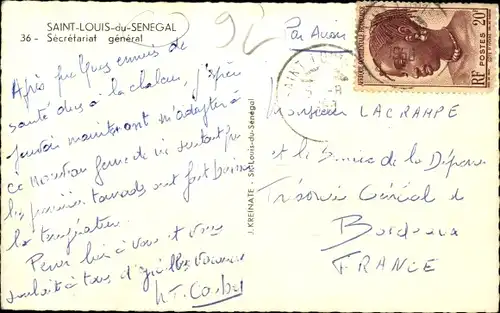 SAINT-LOUIS-du-SENEGAL
36 - Secrétariat général
92
Par Avion
20F
RF
SAINT LOUIS
Après quelques ennuis de
santé dus à la chaleur, j'espère
pouvoir maintenant m'adapter à
ce nouveau genre de vie surtout que
les premières tornades ont fait baisser
la température.
bien à vous et vous
souhaite à tous d'
J. KREINATE - St-Louis-du-Sénégal
Monsieur LACRAMPE
et le Service de la Dépense
Trésorerie Générale de
Bordeaux
FRANCE